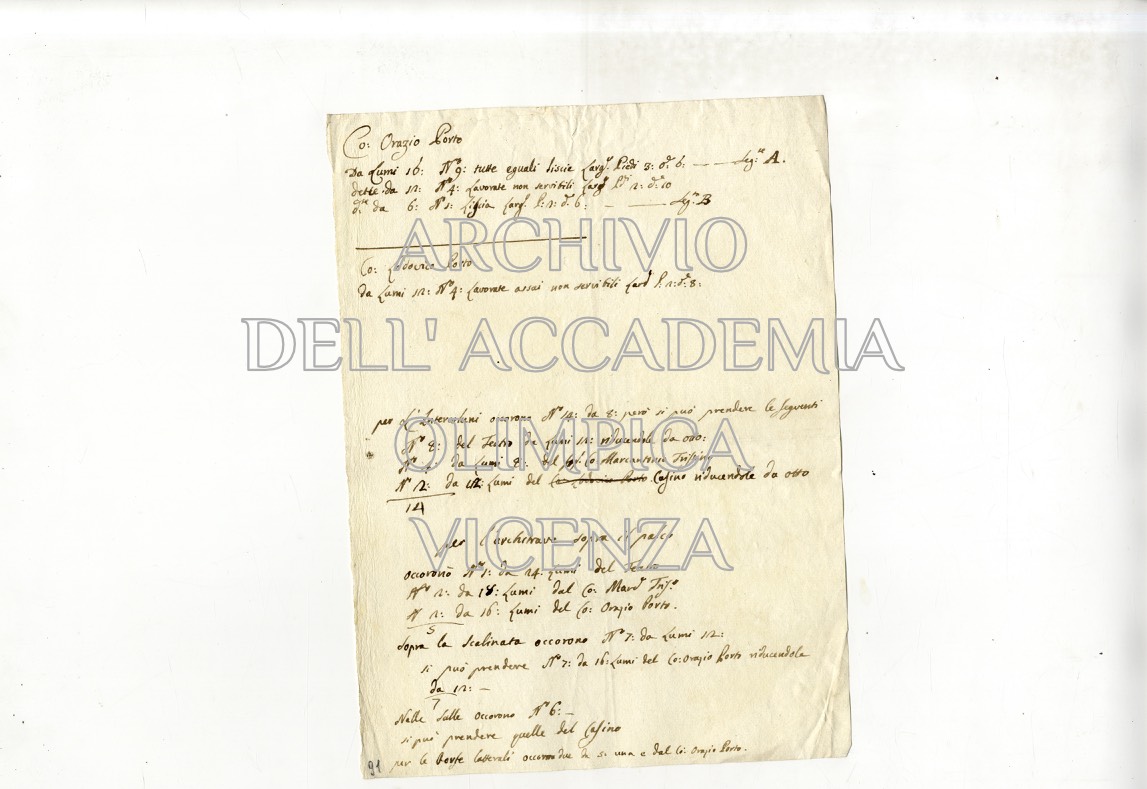 Co: Orazio Porto
Da Lumi 16: N.o 9: tutte eguali liscie Larg. Piedi 3: 6: — Seg. A.
dette da 12: N.o 4: Lavorate non servibili Larg. 2: 10
d.te da 6: N.o 1: Liscia Larg. P. 2: 6: — Seg. B
Co: Lodovico Porto
da Lumi 12: N.o 4: Lavorate assai non servibili Larg. P. 2: 8:
ARCHIVIO
DELL' ACCADEMIA
OLIMPICA
VICENZA
per occorono N.o 14: da 8: però si può prendere le seguenti
N.o 8: del Teatro da Lumi 12: riducendole da otto:
da Lumi 8: del Co: Marcantonio Trissino
N.o 2: da 12: Lumi del Co: Lodovico Porto Casino riducendole da otto
14
per l'architrave sopra il palco
occorono N.o 1: da 24: Lumi del Teatro
N.o 2: da 18: Lumi dal Co:
N.o 2: da 16: Lumi del Co: Orazio Porto.
5
Sopra la Scalinata occorono N.o 7: da Lumi 12:
si può prendere N.o 7: da 16: Lumi del Co: Orazio Porto riducendole
da 12: —
7
Nelle Salle occorono N.o 6: —
si può prendere quelle del Casino
per le laterali due da 5: una e dal Co: Orazio Porto.
91